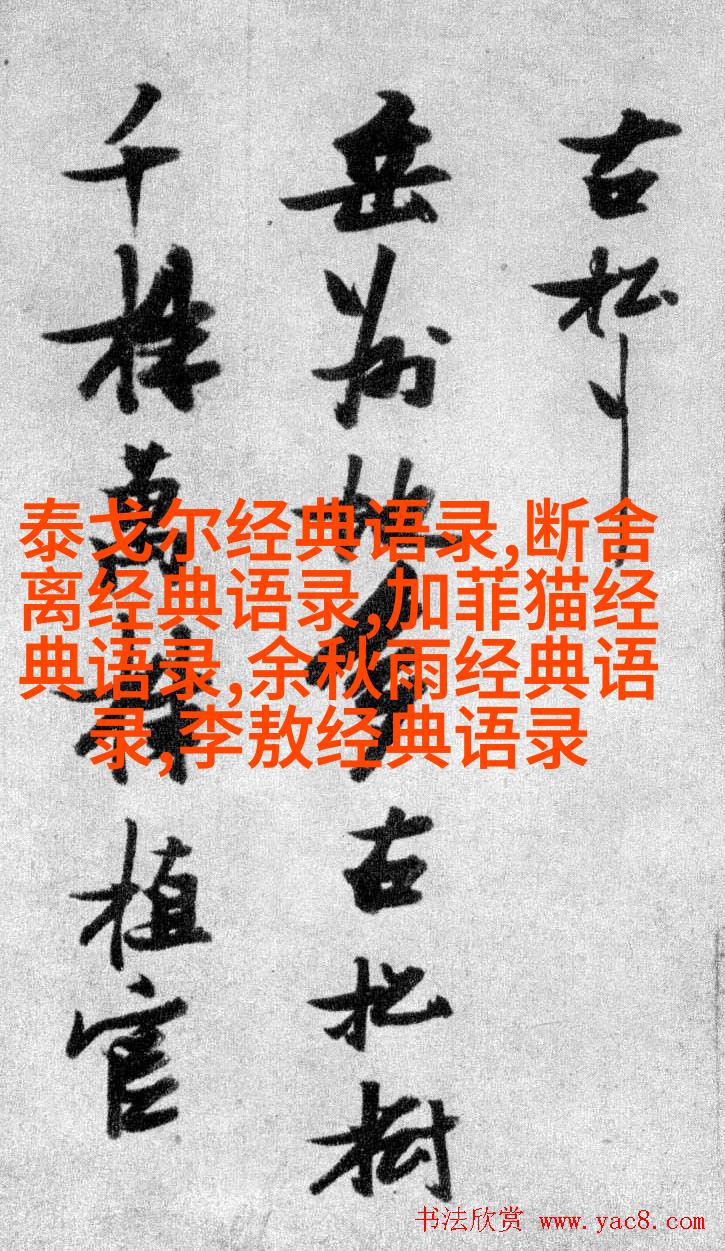 古松
岳州地多古松樹
千株萬株植官
泰戈尔经典语录,断舍
离经典语录,加菲猫经
典语录,余秋雨经典语
录,李敖经典语录
书法欣赏 www.yac8.com